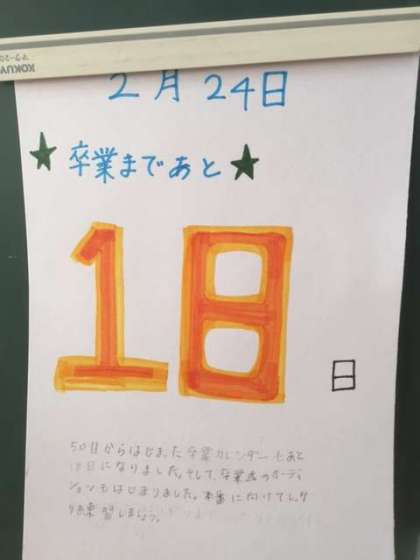 KOKUYO
2月24日
★卒業まであと★
18
日
50日からはじまった卒業カレンダーもあと
18日になりました。そして、卒業式のオーディ
ションもはじまりました。本番に向けてしっか
り練習しましょう。